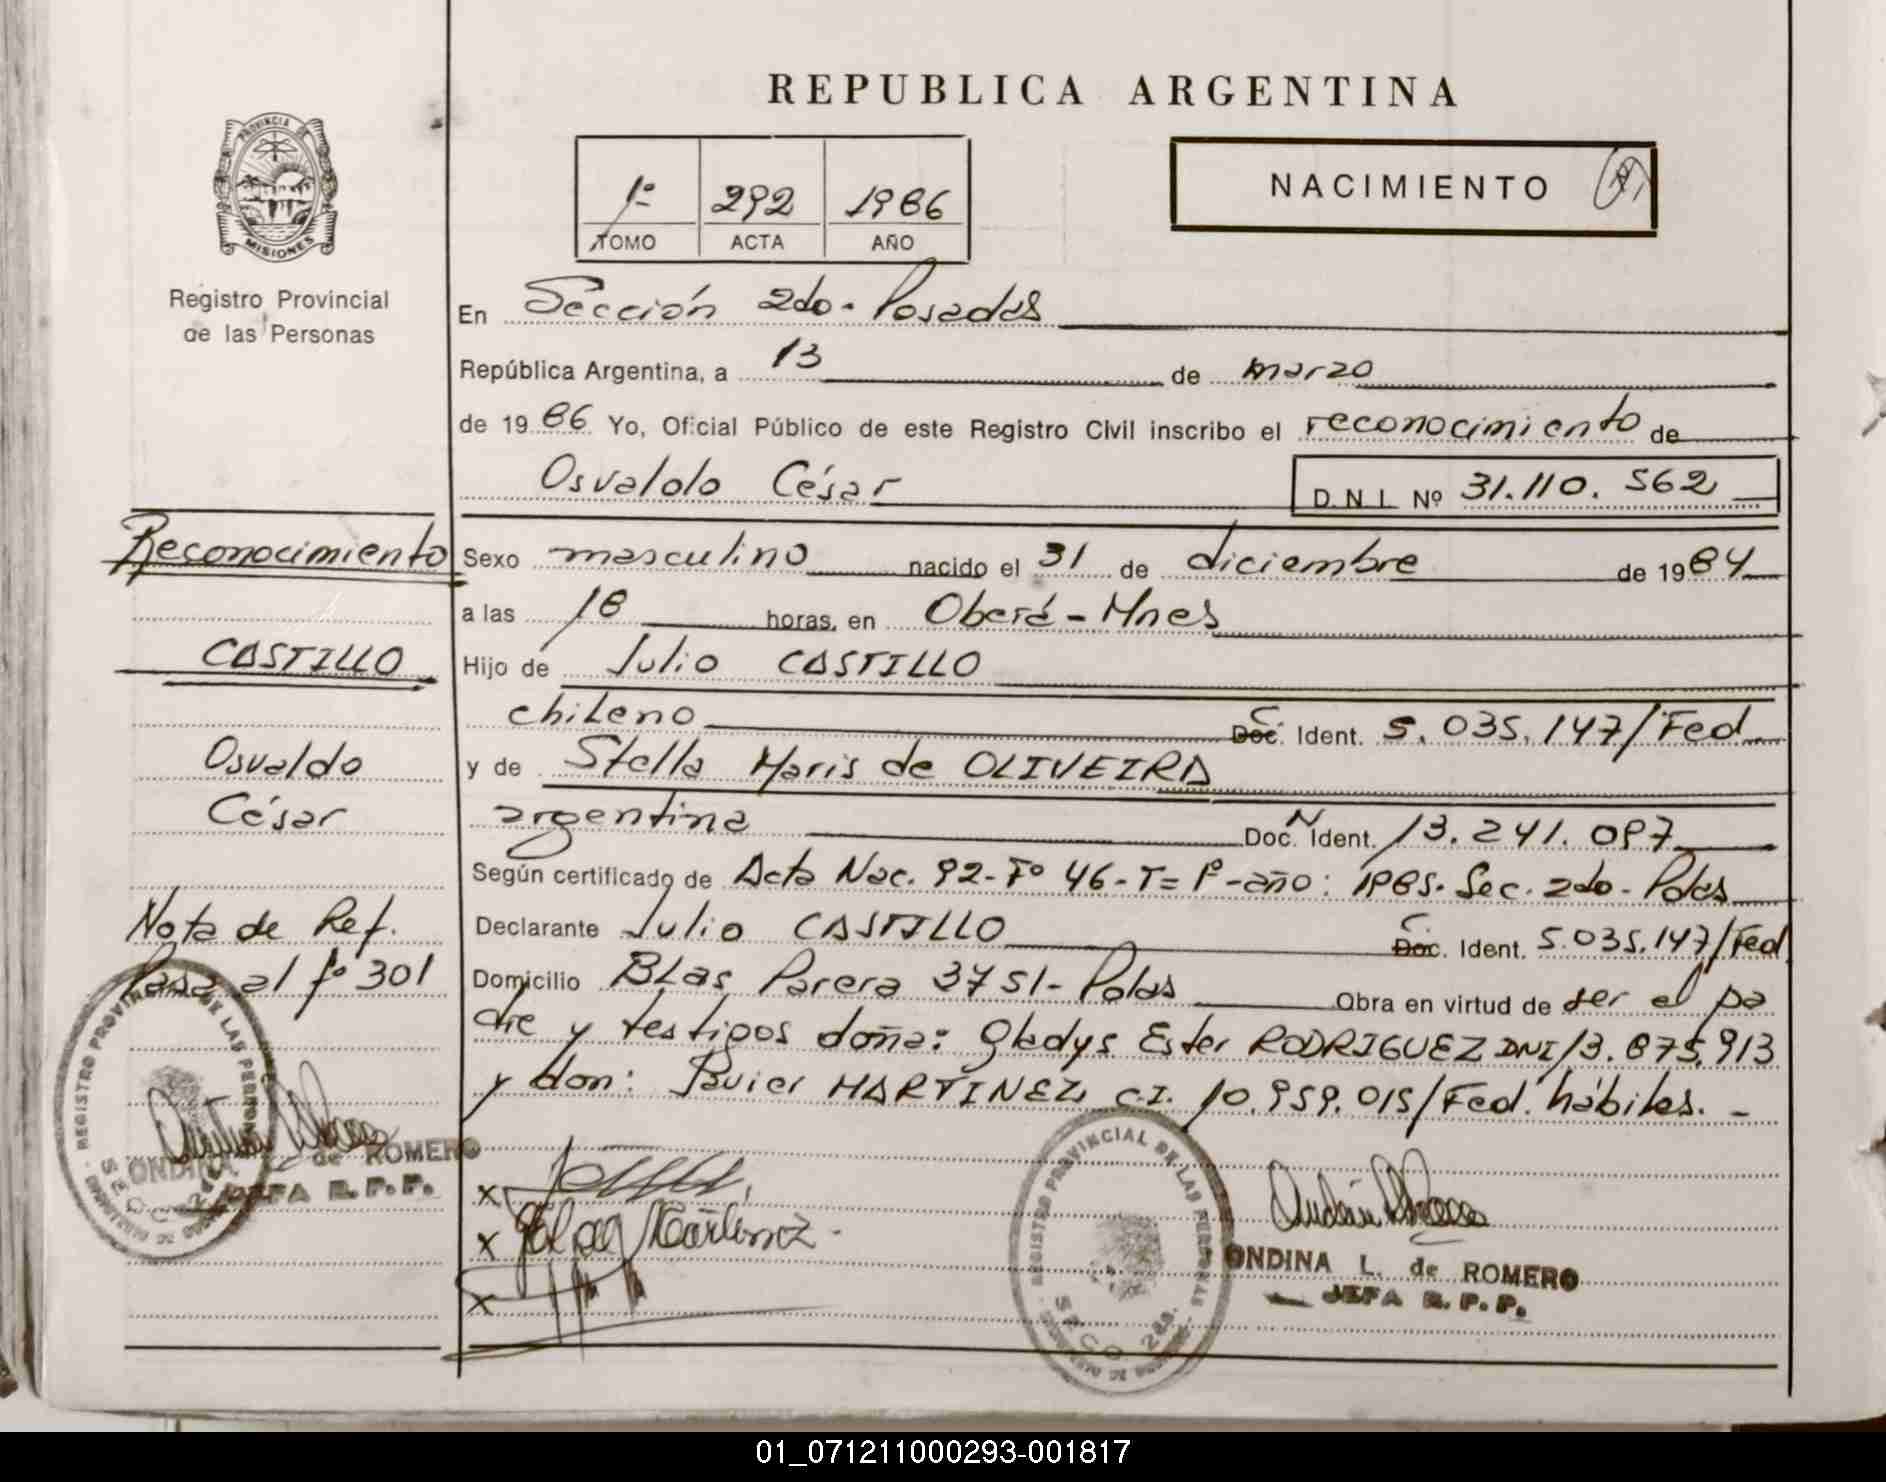 REPUBLICA ARGENTINA
PROVINCIA DE
MISIONES
Registro Provincial
de las Personas
1º 292 1986
TOMO ACTA AÑO
NACIMIENTO
En Sección 2do. Posadas
República Argentina, a 13 de marzo
de 1986 Yo, Oficial Público de este Registro Civil inscribo el reconocimiento de
Osvaldo César D.N.I. Nº 31.110.562
Reconocimiento
CASTILLO
Osvaldo
César
Nota de Ref.
Pasa al fº 301
Sexo masculino nacido el 31 de diciembre de 1984
a las 18 horas, en Oberá - Mnes
Hijo de Julio CASTILLO
chileno Doc. C. Ident. 5.035.147/Fed
y de Stella Maris de OLIVEIRA
argentina Doc. N Ident. 13.241.097
Según certificado de Acta Nac. 92-Fº 46-T= 1º-año: 1985. Sec. 2do- Pdas
Declarante Julio CASTILLO Doc. C. Ident. 5.035.147/Fed
Domicilio BLas Parera 3751- Pdas Obra en virtud de ser el pa
dre y testigos doña: Gladys Ester RODRIGUEZ DNI 13.875.913
y don: Javier MARTINEZ C.I. 10.959.015/Fed. hábiles. -
REGISTRO PROVINCIAL DE LAS PERSONAS
ONDINA L. de ROMERO
JEFA R. P. P.
x
x Martinez
x
REGISTRO PROVINCIAL DE LAS PERSONAS
SECC. 2da.
ONDINA L. de ROMERO
JEFA R. P. P.
01_071211000293-001817